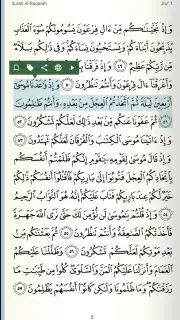 Surah Al-Baqarah
Juz' 1
وَاِذْ نَجَّيْنٰكُمْ مِّنْ اٰلِ فِرْعَوْنَ يَسُوْمُوْنَكُمْ سُوْٓءَ الْعَذَابِ
يُذَبِّحُوْنَ اَبْنَآءَكُمْ وَيَسْتَحْيُوْنَ نِسَآءَكُمْ ؕ وَفِىْ ذٰلِكُمْ بَلَآءٌ
مِّنْ رَّبِّكُمْ عَظِيْمٌ ﴿۴۹﴾ وَاِذْ فَرَقْنَا
وَاَغْرَقْنَآ اٰلَ فِرْعَوْنَ وَاَنْتُمْ تَنْظُرُوْنَ ﴿۵۰﴾ وَاِذْ وٰعَدْنَا مُوْسٰٓى
اَرْبَعِيْنَ لَيْلَةً ثُمَّ اتَّخَذْتُمُ الْعِجْلَ مِنْۢ بَعْدِهٖ وَاَنْتُمْ ظٰلِمُوْنَ
﴿۵۱﴾ ثُمَّ عَفَوْنَا عَنْكُمْ مِّنْۢ بَعْدِ ذٰلِكَ لَعَلَّكُمْ تَشْكُرُوْنَ ﴿۵۲﴾
وَاِذْ اٰتَيْنَا مُوْسَى الْكِتٰبَ وَالْفُرْقَانَ لَعَلَّكُمْ تَهْتَدُوْنَ ﴿۵۳﴾
وَاِذْ قَالَ مُوْسٰى لِقَوْمِهٖ يٰقَوْمِ اِنَّكُمْ ظَلَمْتُمْ اَنْفُسَكُمْ
بِاتِّخَاذِكُمُ الْعِجْلَ فَتُوْبُوْٓا اِلٰى بَارِئِكُمْ فَاقْتُلُوْٓا اَنْفُسَكُمْ ؕ ذٰلِكُمْ
خَيْرٌ لَّكُمْ عِنْدَ بَارِئِكُمْ ؕ فَتَابَ عَلَيْكُمْ ؕ اِنَّهٗ هُوَ التَّوَّابُ الرَّحِيْمُ
﴿۵۴﴾ وَاِذْ قُلْتُمْ يٰمُوْسٰى لَنْ نُّؤْمِنَ لَكَ حَتّٰى نَرَى اللّٰهَ جَهْرَةً
فَاَخَذَتْكُمُ الصّٰعِقَةُ وَاَنْتُمْ تَنْظُرُوْنَ ﴿۵۵﴾ ثُمَّ بَعَثْنٰكُمْ مِّنْۢ
بَعْدِ مَوْتِكُمْ لَعَلَّكُمْ تَشْكُرُوْنَ ﴿۵۶﴾ وَظَلَّلْنَا عَلَيْكُمُ
الْغَمَامَ وَاَنْزَلْنَا عَلَيْكُمُ الْمَنَّ وَالسَّلْوٰى ؕ كُلُوْا مِنْ طَيِّبٰتِ مَا
رَزَقْنٰكُمْ ؕ وَمَا ظَلَمُوْنَا وَلٰكِنْ كَانُوْٓا اَنْفُسَهُمْ يَظْلِمُوْنَ ﴿۵۷﴾